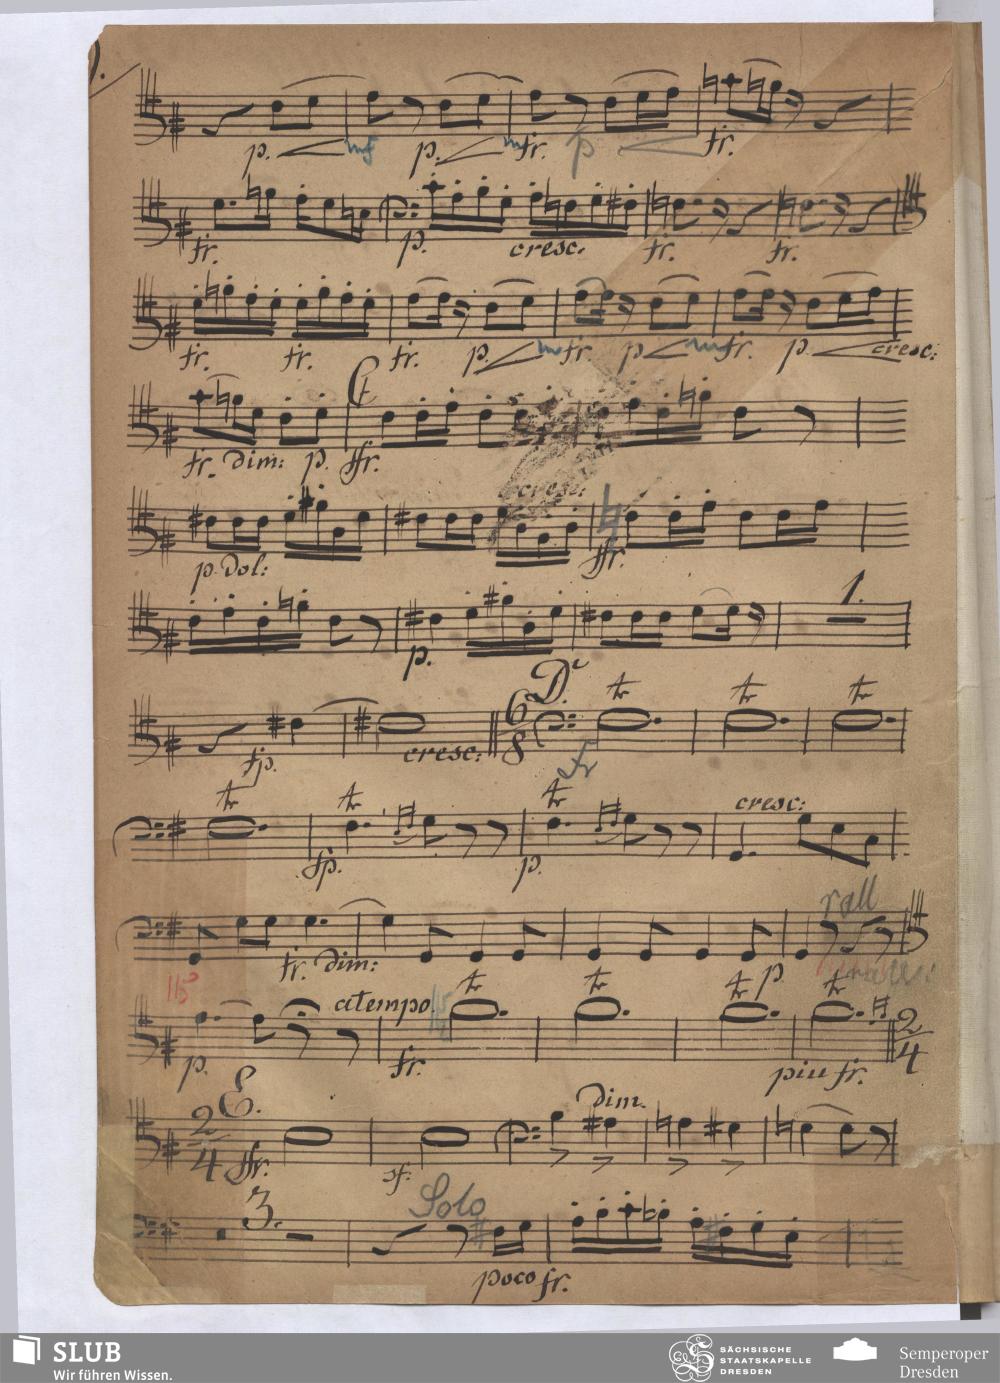 p. mf p. mfr. p fr.
fr. p. cresc: fr. fr.
fr. fr. fr. p. mfr. p mfr. p. cresc:
C
fr. dim: p. ffr.
cresc:
p. dol: ffr.
1.
p.
D.
tr tr tr
6
8
fp. cresc: fr
tr tr tr cresc:
fp. p.
rall
fr. dim: p
a tempo tr tr tr tr
p. fr. piu fr.
2
4
E.
dim.
2
4
ffr. sf.
3. Solo
poco fr.
SLUB
Wir führen Wissen.
SÄCHSISCHE
STAATSKAPELLE
DRESDEN
Semperoper
Dresden